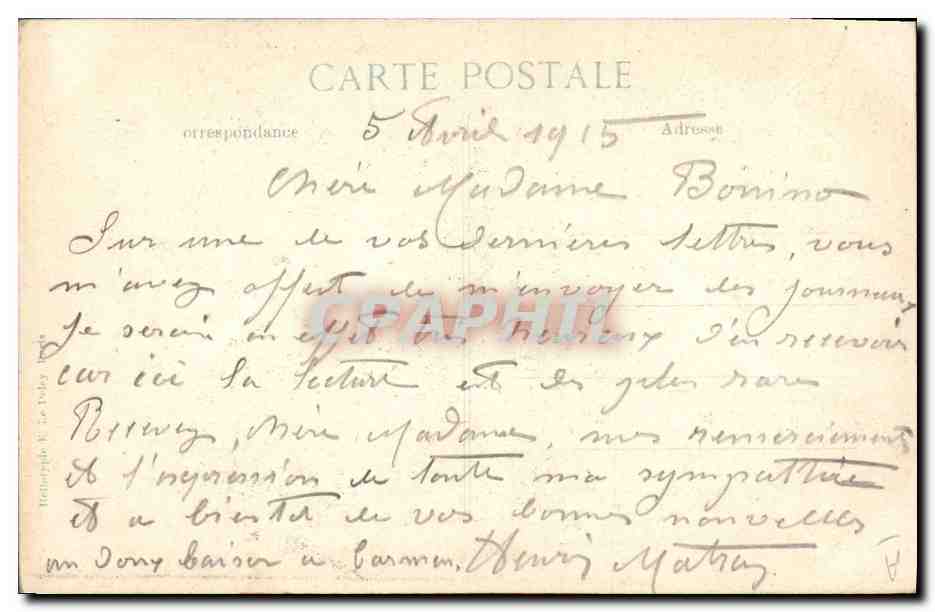 CARTE POSTALE
orrespondance 5 Avril 1915 Adresse
Chère Madame Bonino
Sur une de vos dernières lettres, vous
m'avez offert de m'envoyer des journaux
Je serais en effet très heureux d'en recevoir
car ici la lecture est des plus rares
Recevez, chère Madame, mes remerciements
et l'expression de toute ma sympathie
et a bientot de vos bonnes nouvelles
un doux baiser a Carmen. Henri
CPAPHIL